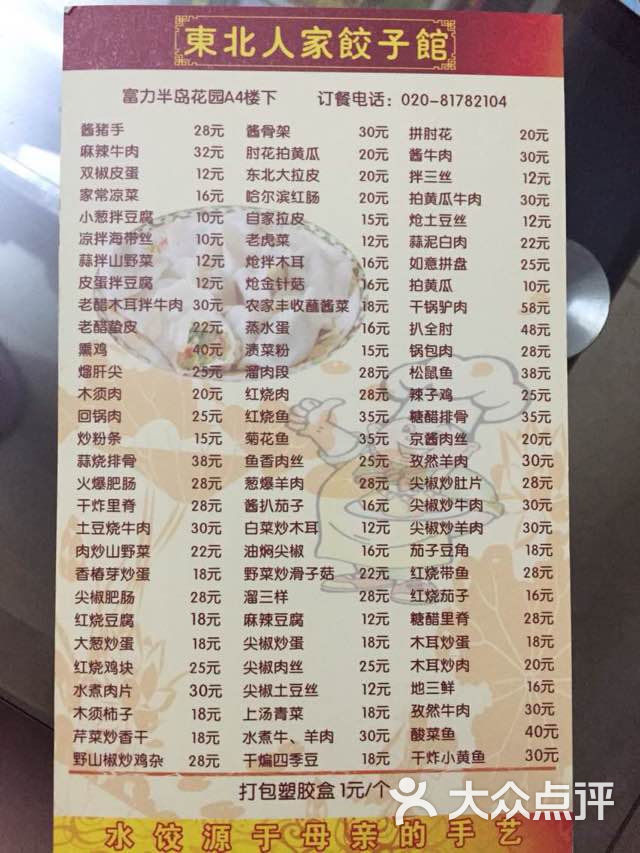 東北人家餃子館
富力半岛花园A4楼下 订餐电话：020-81782104
酱猪手 28元 酱骨架 30元 拼肘花 20元
麻辣牛肉 32元 肘花拍黄瓜 20元 酱牛肉 30元
双椒皮蛋 12元 东北大拉皮 20元 拌三丝 12元
家常凉菜 16元 哈尔滨红肠 20元 拍黄瓜牛肉 30元
小葱拌豆腐 10元 自家拉皮 15元 炝土豆丝 12元
凉拌海带丝 10元 老虎菜 12元 蒜泥白肉 22元
蒜拌山野菜 12元 炝拌木耳 16元 如意拼盘 25元
皮蛋拌豆腐 12元 炝金针菇 16元 拍黄瓜 10元
老醋木耳拌牛肉 30元 农家丰收蘸酱菜 18元 干锅驴肉 58元
老醋蛰皮 22元 蒸水蛋 16元 扒全肘 48元
熏鸡 40元 渍菜粉 15元 锅包肉 28元
熘肝尖 25元 溜肉段 28元 松鼠鱼 38元
木须肉 20元 红烧肉 28元 辣子鸡 25元
回锅肉 25元 红烧鱼 35元 糖醋排骨 35元
炒粉条 15元 菊花鱼 35元 京酱肉丝 20元
蒜烧排骨 38元 鱼香肉丝 25元 孜然羊肉 30元
火爆肥肠 28元 葱爆羊肉 28元 尖椒炒肚片 28元
干炸里脊 28元 酱扒茄子 16元 尖椒炒牛肉 30元
土豆烧牛肉 30元 白菜炒木耳 12元 尖椒炒羊肉 30元
肉炒山野菜 22元 油焖尖椒 16元 茄子豆角 18元
香椿芽炒蛋 18元 野菜炒滑子菇 22元 红烧带鱼 28元
尖椒肥肠 28元 溜三样 28元 红烧茄子 16元
红烧豆腐 18元 麻辣豆腐 12元 糖醋里脊 28元
大葱炒蛋 18元 尖椒炒蛋 18元 木耳炒蛋 18元
红烧鸡块 25元 尖椒肉丝 25元 木耳炒肉 20元
水煮肉片 30元 尖椒土豆丝 12元 地三鲜 16元
木须柿子 18元 上汤青菜 18元 孜然牛肉 30元
芹菜炒香干 18元 水煮牛、羊肉 30元 酸菜鱼 40元
野山椒炒鸡杂 28元 干煸四季豆 18元 干炸小黄鱼 30元
打包塑胶盒1元/个
大众点评
水饺源于母亲的手艺